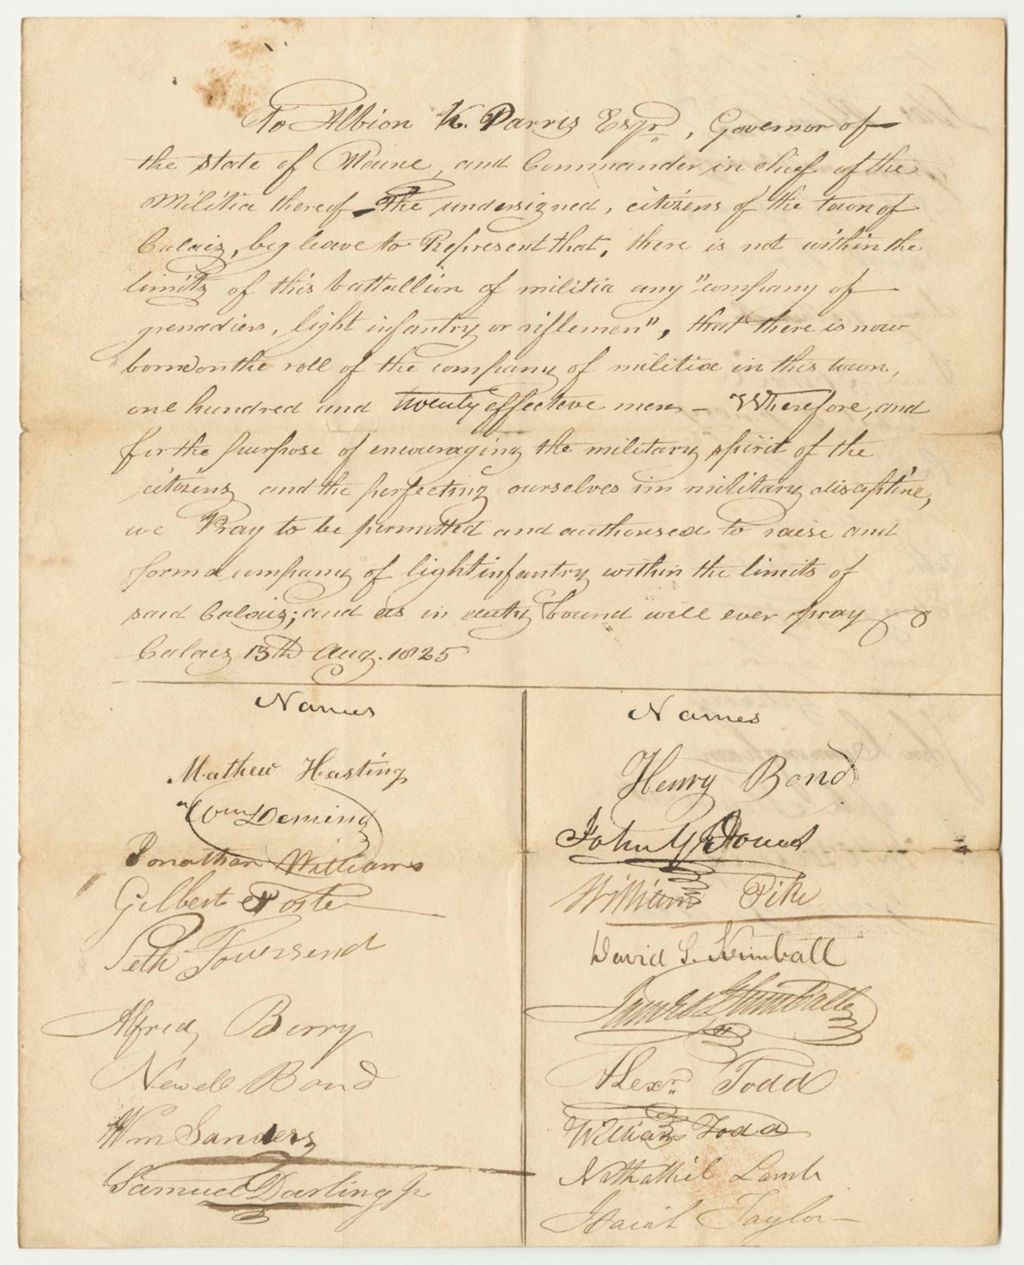 To Albion K. Parris Esqr., Governor of
the state of Maine, and Commander in chief of the
Militia thereof - The undersigned, citizens of the town of
Calais, beg leave to Represent that, there is not within the
limits of this battallion of militia any "company of
grenadiers, light infantry or riflemen", that there is now
borne on the roll of the company of militia in this town,
one hundred and twenty effective men - Wherefore, and
for the purpose of encouraging the military spirit of the
citizens and the perfecting ourselves in military discipline,
we Pray to be permitted and authorised to raise and
form a company of light infantry within the limits of
said Calais; and as in duty bound will ever pray
Calais 13th Aug. 1825
Names
Mathew Hasting
Wm Deming
Jonathan Williams
Gilbert Foster
Seth Townsend
Alfred Berry
Newell Bond
Wm Sanders
Samuel Darling Jr
Names
Henry Bond
John
William Pike
David S. Kimball
Kimball
Alexr. Todd
William Todd
Nathaniel Lamb
Isaiah Taylor